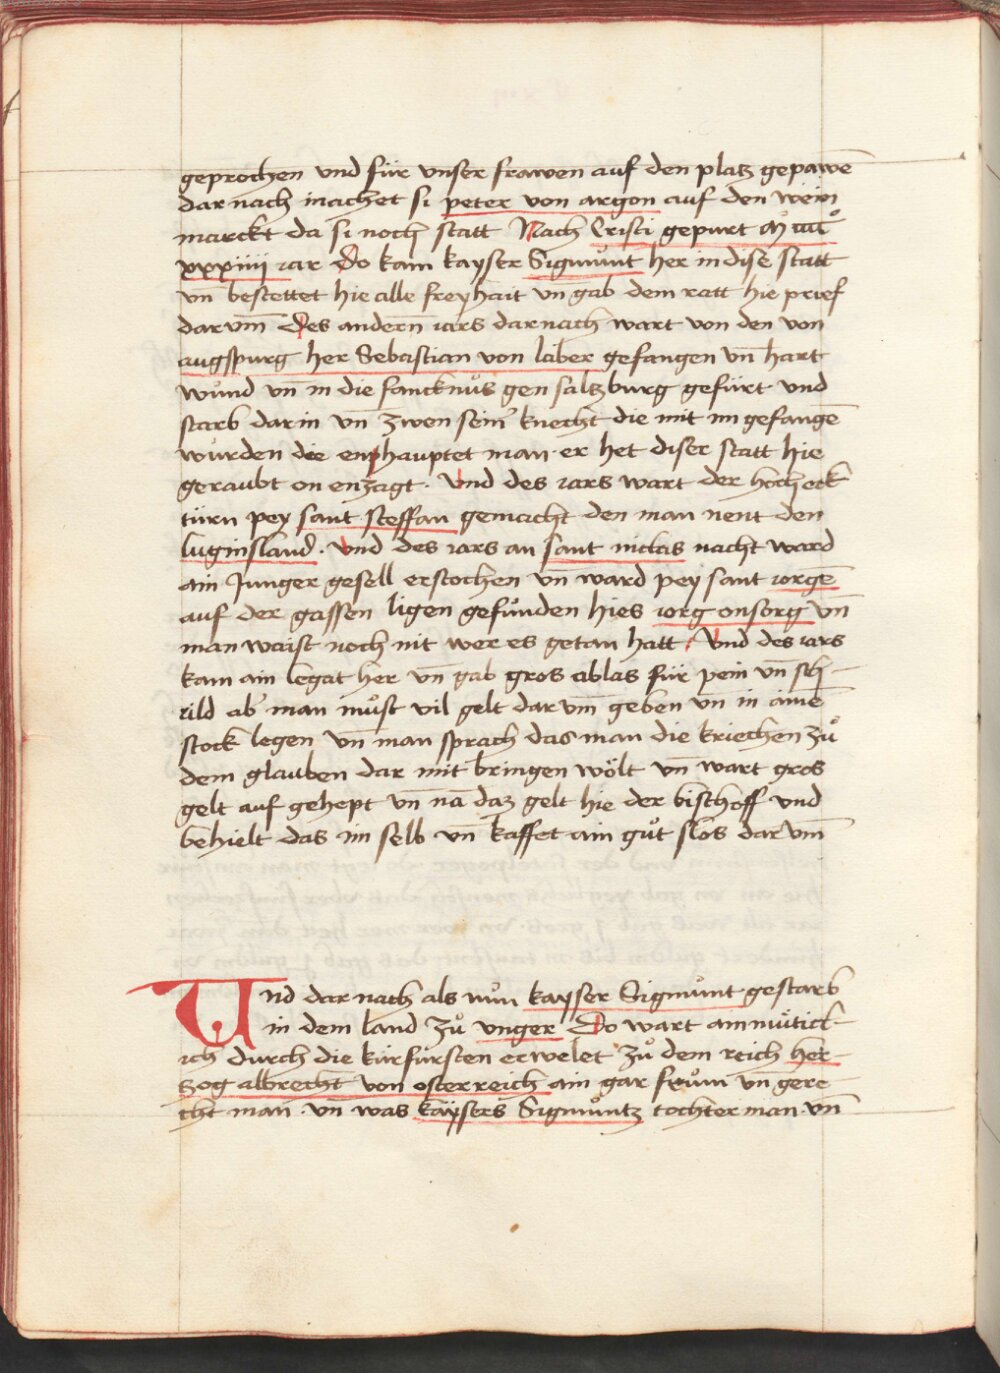 geprochen vnd für vnser frawen auf den platz gepawē
dar nach machet si peter von argon auf den wein
marckt da si noch statt Nach Cristi gepurt
xxxiiii iar Do kam kayser Sigmůnt her in dise statt
vn̄ bestettet hie alle freyhait vn̄ gab dem ratt hie prief
darvm̄ Des andern iars darnach wart von den von
augspurg her Sebastian von laber gefangen vn̄ hart
wund vn̄ in die fancknůs gen saltzburg gefürt vnd
starb darin vn̄ zwen sein̄ knecht die mit im gefangē
wurden die enphauptet man · er het diser statt hie
geraubt on enzagt · Vnd des iars wart der hoch eck
türn pey sant steffan gemacht den man nent den
luginsland · Vnd des iars an sant niclas nacht ward
ain Junger gesell erstochen vn̄ ward pey sant iorgē
auf der gassen ligen gefůnden hies iorg onsorg vn̄
man waist noch nit wer es getan hatt · Vnd des iars
kam ain legat her vn̄ gab gros ablas für pein vn̄ sch
uld ab' man můst vil gelt darvm̄ geben vn̄ in ainē
stock legen vn̄ man sprach das man die kriechen zů
dem glauben dar mit bringen wölt vn̄ wart gros
gelt auf gehept vn̄ nā daz gelt hie der bischoff vnd
behielt das im selb vn̄ kaffet ain gůt slos darvm̄
Vnd dar nach als nůn kayser Sigmůnt gestarb
in dem land zů vnger Do wart ainmütick-
ich durch die kürfürsten erwelet zů dem reich her-
tzog albrecht von osterreich ain gar frům vn̄ gere
cht man · vn̄ was kaysers Sigmůntz tochter man · vn̄